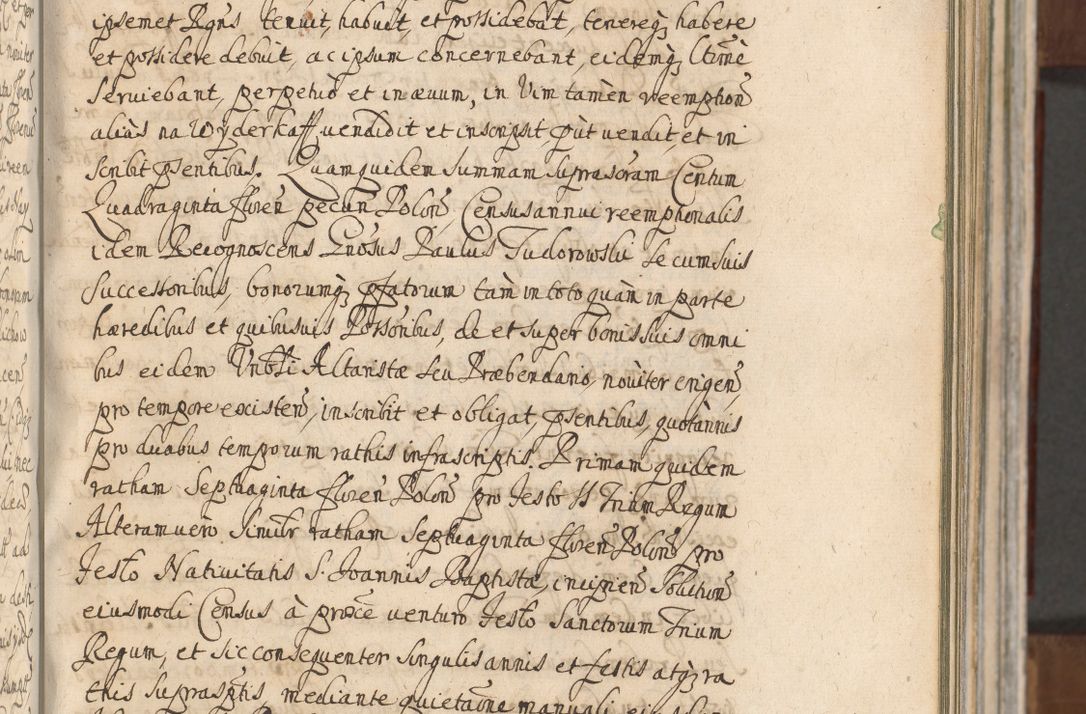 ipsemet Rgns tenuit, habuit, et possidebat, tenereq₃ habere
et possidere debuit, ac ipsum concernebant, eidemq₃ Ltimè
Seruiebant, perpetuo et in æuum, in Vim tamèn reemption̄
aliàs na Wyderkaff uendidit et inscripsit, put uendit, et in
scribit psentibus. Quamquidem Summam suprascram Centum
Quadraginta floren̄ pecun̄ Polon̄, Census annui reemptionalis
idem Recognoscens Gnosus Paulus Tudorowski Secum suis
Successoribus, bonorumq₃ pfatorum tàm in toto quàm in parte
hæredibus et quibusuis Possoribus, de et super bonis suis omni
bus eidem Vnbli Altaristæ seu Præbendario, nouiter erigen̄,
pro tempore existen̄, inscribit et obligat, psentibus, quotannis
pro duabus temporum rathis infrascriptis. Primam quidem
ratham Septuaginta floren̄ Polon̄ pro festo SS Trium Regum
Alteram uero Similr ratham Septuaginta floren̄ Polon̄ pro
festo Natiuitatis S. Joannis Baptistæ, incipien̄ Solution̄
eiusmodi Census à proxe uenturo festo Sanctorum Trium
Regum, et sic consequenter singulis annis et festis atq₃ ra
this suprasptis, mediante quietatione manuali